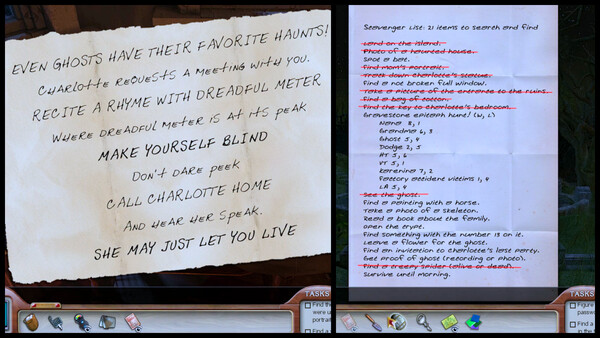 EVEN GHOSTS HAVE THEIR FAVORITE HAUNTS!
CHARLOTTE REQUESTS A MEETING WITH YOU.
RECITE A RHYME WITH DREADFUL METER
WHERE DREADFUL METER IS AT ITS PEAK
MAKE YOURSELF BLIND
DON'T DARE PEEK
CALL CHARLOTTE HOME
AND HEAR HER SPEAK.
SHE MAY JUST LET YOU LIVE
TASKS
Find th
were us
portrait
Find a
Scavenger List: 21 items to search and find
Land on the island.
Photo of a haunted house.
Spot a bat.
Find mom's portrait.
Track down Charlotte's statue.
Find a not broken full window.
Take a picture of the entrance to the ruins.
Find a bag of cotton.
Find the key to Charlotte's bedroom.
Gravestone epitaph hunt! (W, L)
Nana 8, 1
Grandma 6, 3
Ghost 5, 4
Dodge 2, 5
HT 5, 6
VT 5, 1
Karenina 7, 2
Factory accident victims 1, 4
LA 5, 4
See the ghost.
Find a painting with a horse.
Take a photo of a skeleton.
Read a book about the family.
Open the crypt.
Find something with the number 13 on it.
Leave a flower for the ghost.
Find an invitation to Charlotte's last party.
Get proof of ghost (recording or photo).
Find a creepy spider (alive or dead).
Survive until morning.
TASKS
Figure
passwo
Find a
in the